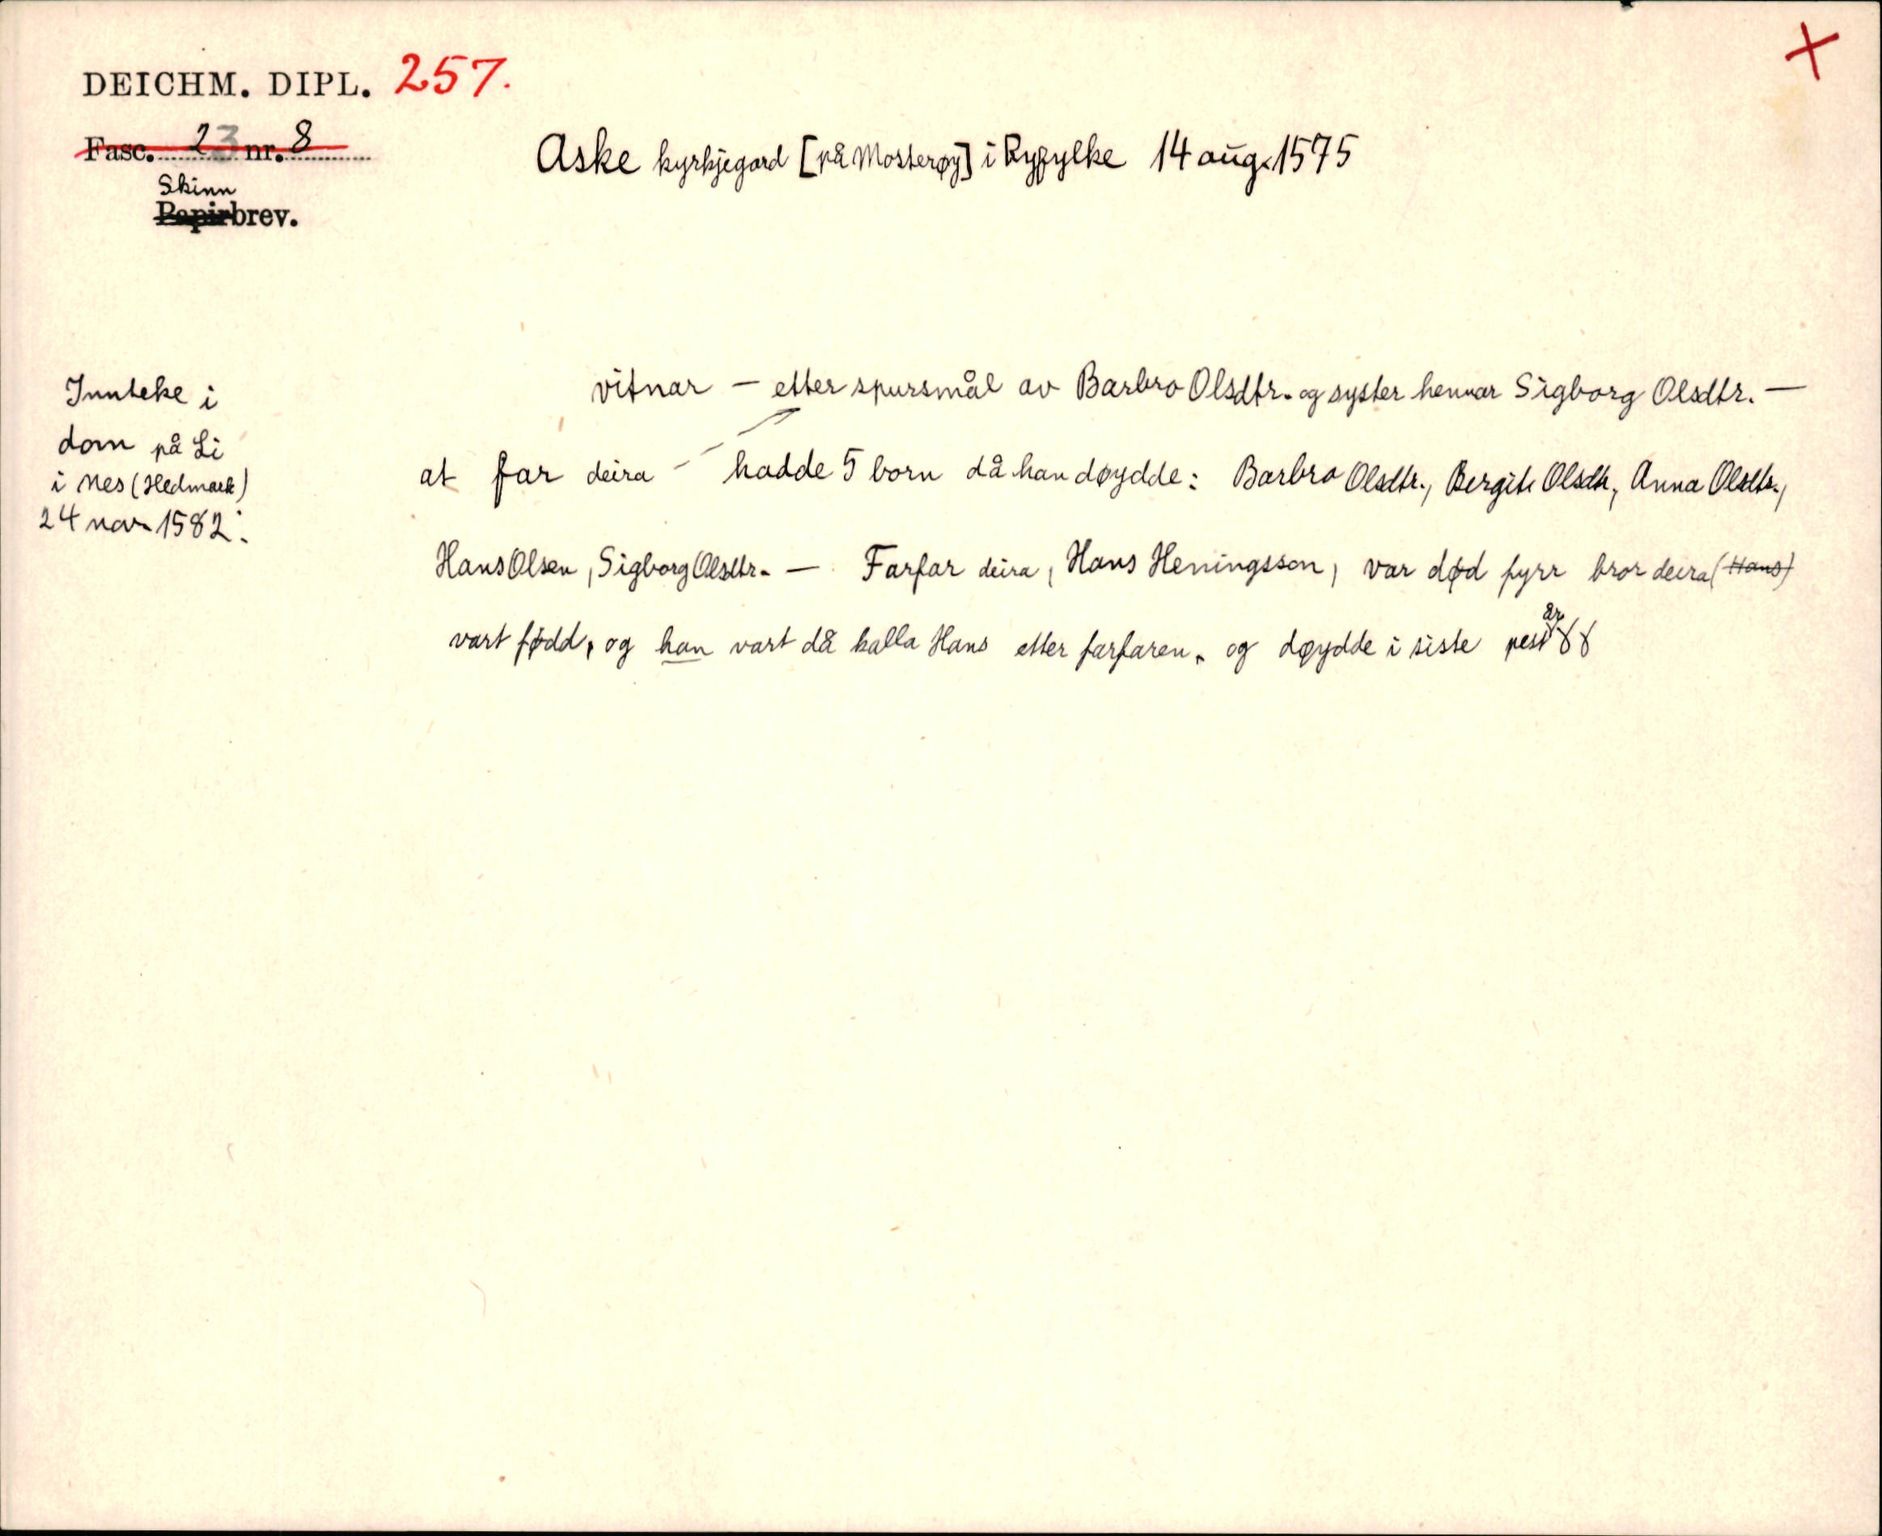 DEICHM. DIPL. 257.
Fasc. 23 nr. 8
Skinn
Papirbrev.
Aske kyrkjegard [på Mosterøy] i Ryfylke 14 aug. 1575
Innteke i
dom på Li
i Nes (Hedmark)
24 nov. 1582:
vitnar — etter spursmål av Barbro Olsdtr. og syster hennar Sigborg Olsdtr. —
at far deira — hadde 5 born då han døydde: Barbro Olsdtr., Bergite Olsdtr., Anna Olsdtr.,
Hans Olsen, Sigborg Olsdtr. — Farfar deira, Hans Heningsson, var død fyrr bror deira (Hans)
vart fødd, og han vart då kalla Hans etter farfaren, og døydde i siste pest
år